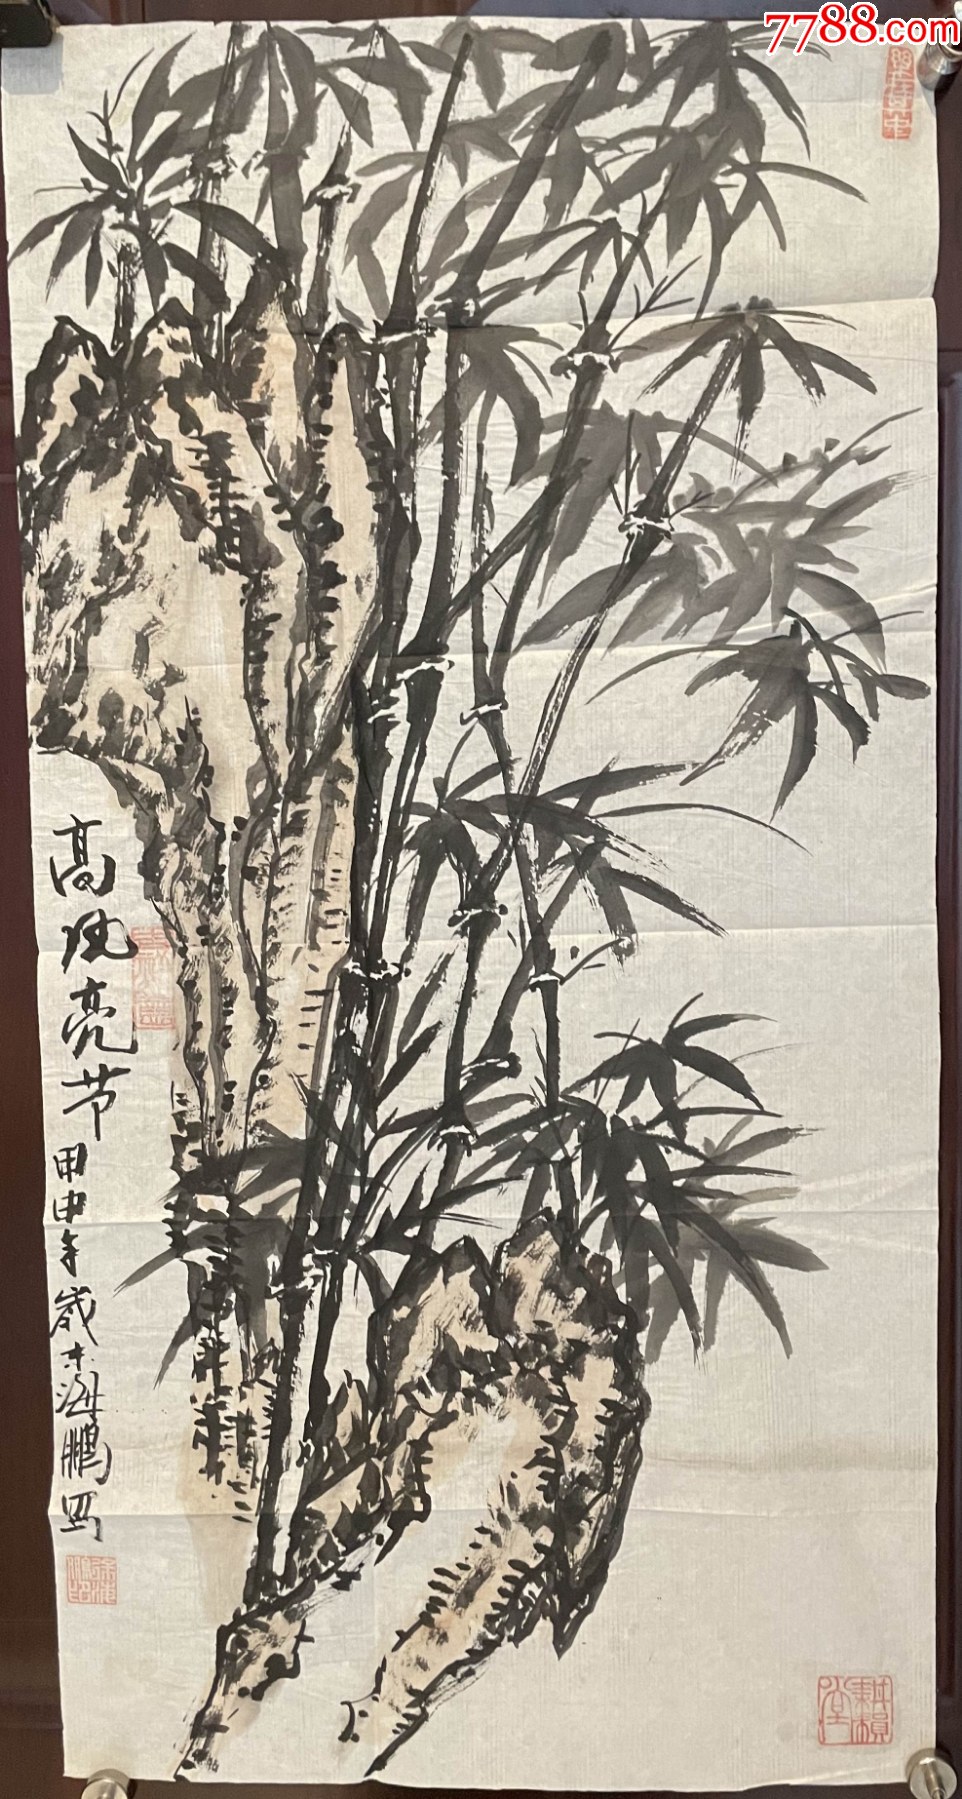 7788.com
高风亮节
甲申年岁末海鹏写